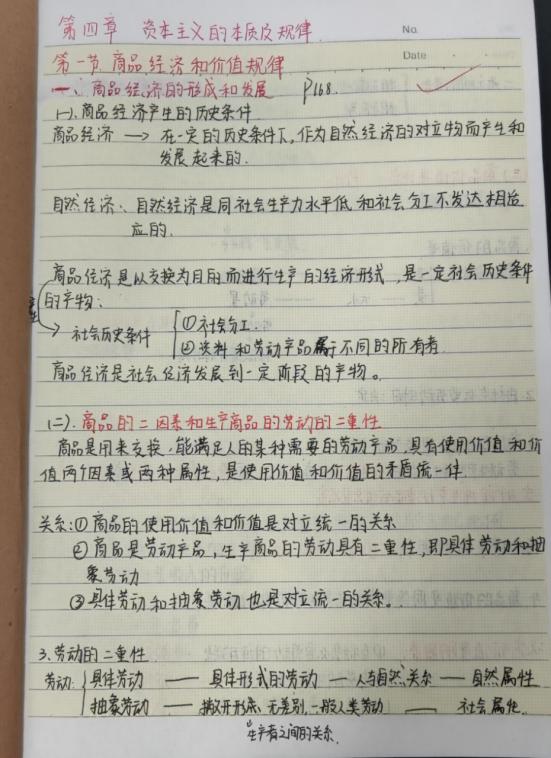 第四章 资本主义的本质及规律
No.
Date
第一节 商品经济和价值规律
一、商品经济的形成和发展 P168.
(一).商品经济产生的历史条件
商品经济 → 在一定的历史条件下,作为自然经济的对立物而产生和
发展起来的.
自然经济:自然经济是同社会生产力水平低和社会分工不发达相适
应的.
商品经济是以交换为目的而进行生产的经济形式,是一定社会历史条件
的产物:
→ 社会历史条件 ①社会分工.
②资料和劳动产品属于不同的所有者
商品经济是社会经济发展到一定阶段的产物。
(二).商品的二因素和生产商品的劳动的二重性
商品是用来交换,能满足人的某种需要的劳动产品,具有使用价值和价
值两个因素或两种属性,是使用价值和价值的矛盾统一体.
关系:①商品的使用价值和价值是对立统一的关系
②商品是劳动产品,生产商品的劳动具有二重性,即具体劳动和抽
象劳动
③具体劳动和抽象劳动也是对立统一的关系.
3.劳动的二重性
劳动: 具体劳动 — 具体形式的劳动 — 人与自然关系 — 自然属性
抽象劳动 — 撇开形态、无差别,一般人类劳动 — 社会属性
生产者之间的关系.